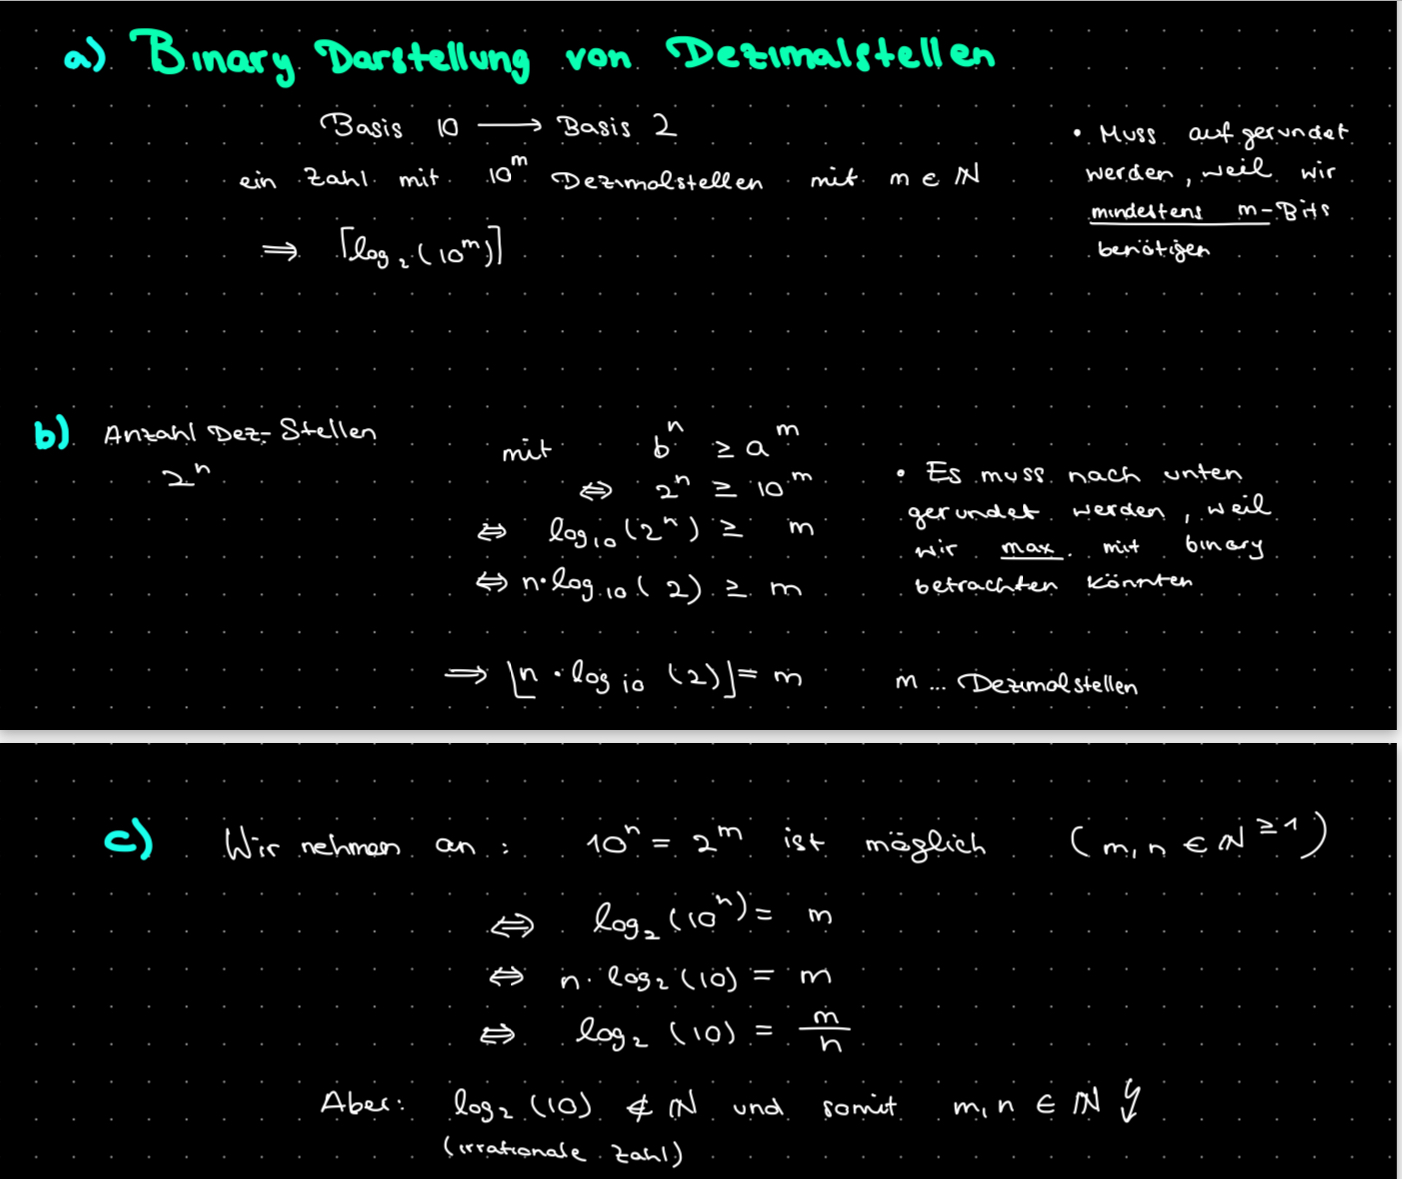 a) Binary Darstellung von Dezimalstellen
Basis 10 → Basis 2
ein Zahl mit 10^m Dezimalstellen mit m ∈ ℕ
⇒ ⌈log₂(10^m)⌉
• Muss aufgerundet
werden, weil wir
mindestens m-Bits
benötigen
b) Anzahl Dez-Stellen
2^n
mit b^n ≥ a^m
⇔ 2^n ≥ 10^m
⇔ log₁₀(2^n) ≥ m
⇔ n·log₁₀(2) ≥ m
⇒ ⌊n·log₁₀(2)⌋ = m
• Es muss nach unten
gerundet werden, weil
wir max. mit binary
betrachten könnten
m ... Dezimalstellen
c) Wir nehmen an: 10^n = 2^m ist möglich (m, n ∈ ℕ^≥1)
⇔ log₂(10^n) = m
⇔ n·log₂(10) = m
⇔ log₂(10) = m/n
Aber: log₂(10) ∉ ℕ und somit m, n ∈ ℕ ↯
(irrationale Zahl)